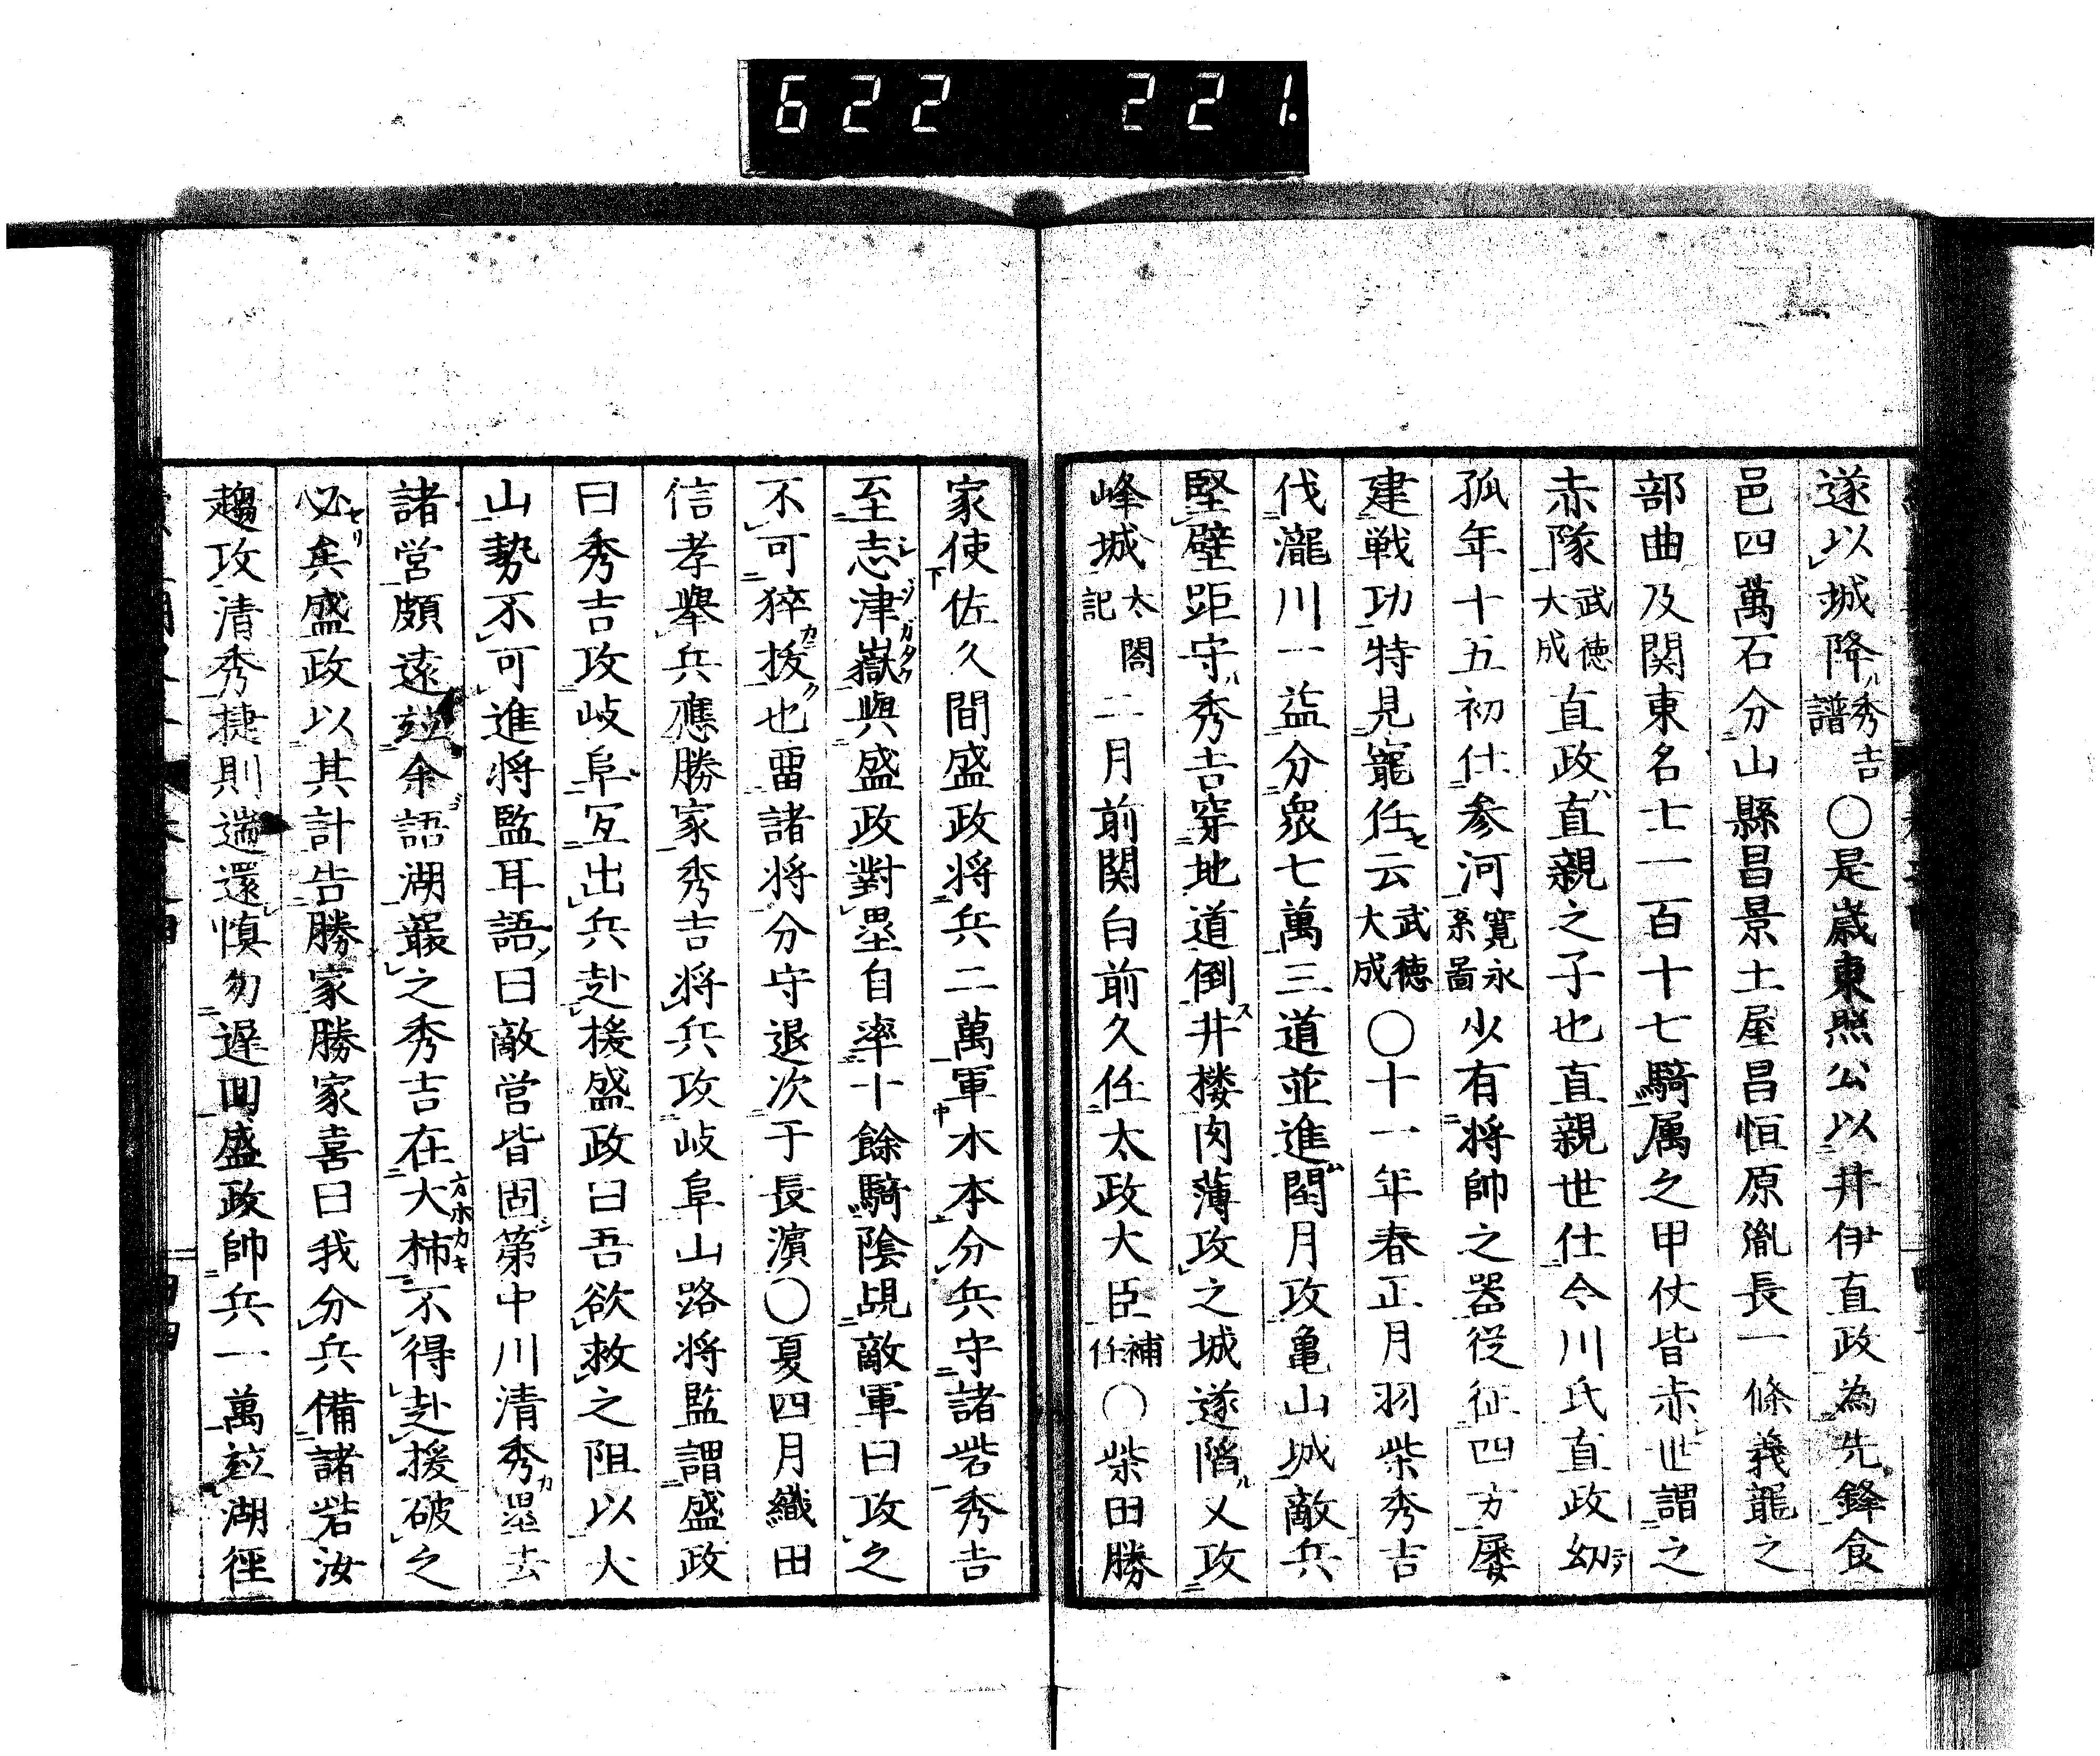 622 221.
遂以城降秀吉譜〇是歳東照公以井伊直政為先鋒食
邑四萬石分山縣昌景土屋昌恒原胤長一條義龍之
部曲及関東名士一百十七騎属之甲仗皆赤世謂之
赤隊武徳大成直政直親之子也直親世仕今川氏直政幼
孤年十五初仕参河寛永系圖少有将帥之器従征四方屡
建戦功特見寵任云武徳大成〇十一年春正月羽柴秀吉
伐瀧川一益分衆七萬三道並進閏月攻亀山城敵兵
堅壁距守秀吉穿地道倒井楼肉薄攻之城遂陥又攻
峰城太閤記二月前関白前久任太政大臣補任〇柴田勝
家使佐久間盛政将兵二萬軍木本分兵守諸砦秀吉
至志津嶽與盛政對塁自率十餘騎陰覘敵軍曰攻之
不可猝拔也畱諸将分守退次于長濱〇夏四月織田
信孝舉兵應勝家秀吉将兵攻岐阜山路将監謂盛政
曰秀吉攻岐阜宜出兵赴援盛政曰吾欲救之阻以大
山勢不可進将監耳語曰敵営皆固第中川清秀塁去
諸営頗遠竝余語湖襲之秀吉在大柿不得赴援破之
必矣盛政以其計告勝家勝家喜曰我分兵備諸砦汝
趨攻清秀捷則遄還慎勿遅回盛政帥兵一萬竝湖徑